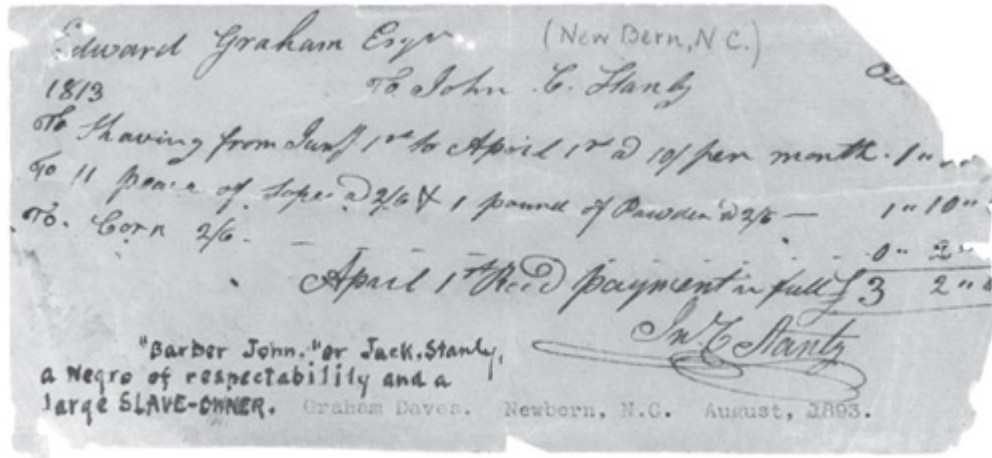 Edward Graham Esqr (New Bern, N.C.)
1813 To John C. Stanly
To Shaving from Jany 1st to April 1st @ 10/ per month. 1"
To 11 of Sope @ 2/6 & 1 pound of Powder @ 2/6 — 1 " 10 "
To. Corn 2/6. — 0 " 2 "
April 1st Recd payment in full £ 3 2 "
Jno. C Stanly
"Barber John." or Jack. Stanly,
a Negro of respectability and a
large SLAVE-OWNER. Graham Daves. Newbern, N.C. August, 1893.